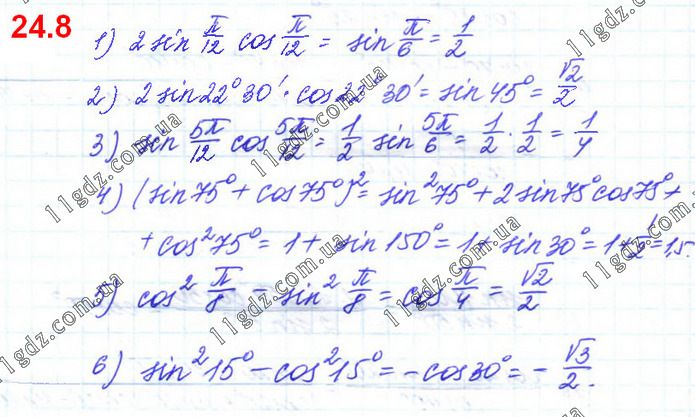 24.8
1) 2 sin π/12 cos π/12 = sin π/6 = 1/2
2) 2 sin 22°30' · cos 22°30' = sin 45° = √2/2
3) sin 5π/12 cos 5π/12 = 1/2 sin 5π/6 = 1/2 · 1/2 = 1/4
4) (sin 75° + cos 75°)² = sin² 75° + 2 sin 75° cos 75° +
+ cos² 75° = 1 + sin 150° = 1 + sin 30° = 1 + 1/2 = 1,5.
5) cos² π/8 - sin² π/8 = cos π/4 = √2/2
6) sin² 15° - cos² 15° = - cos 30° = - √3/2.
11gdz.com.ua
11gdz.com.ua
11gdz.com.ua
11gdz.com.ua
11gdz.com.ua
11gdz.com.ua